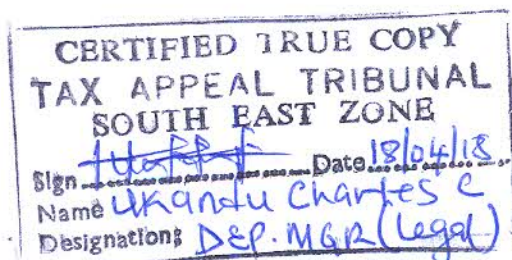 CERTIFIED TRUE COPY
TAX APPEAL TRIBUNAL
SOUTH EAST ZONE
Sign Date 18/04/18
Name Ukandu Charles C
Designation: DEP. MGR (Legal)